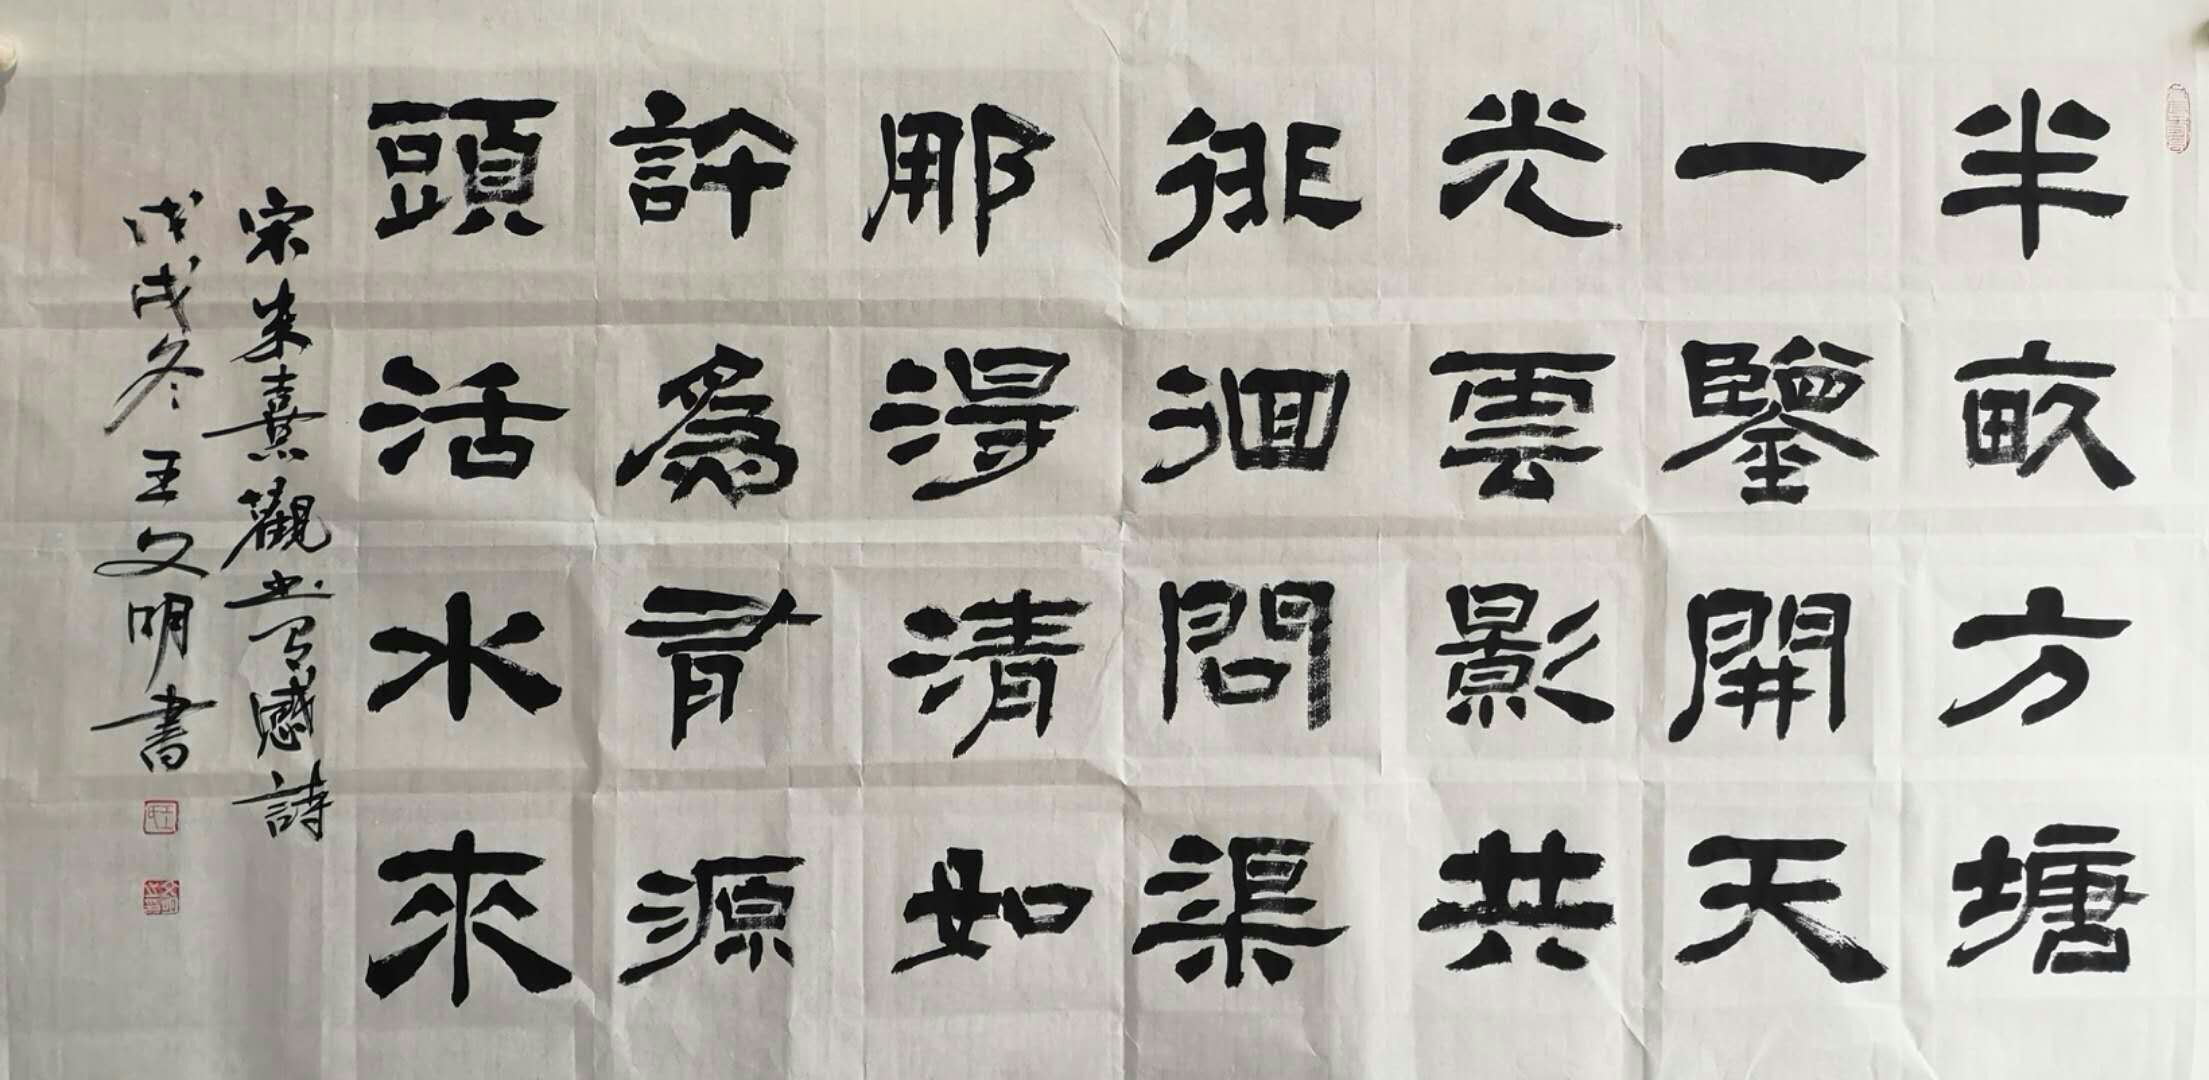 半畝方塘
一鑒開天
光雲影共
徘徊問渠
那得清如
許為有源
頭活水來
宋朱熹觀書有感詩
戊戌冬王文明書